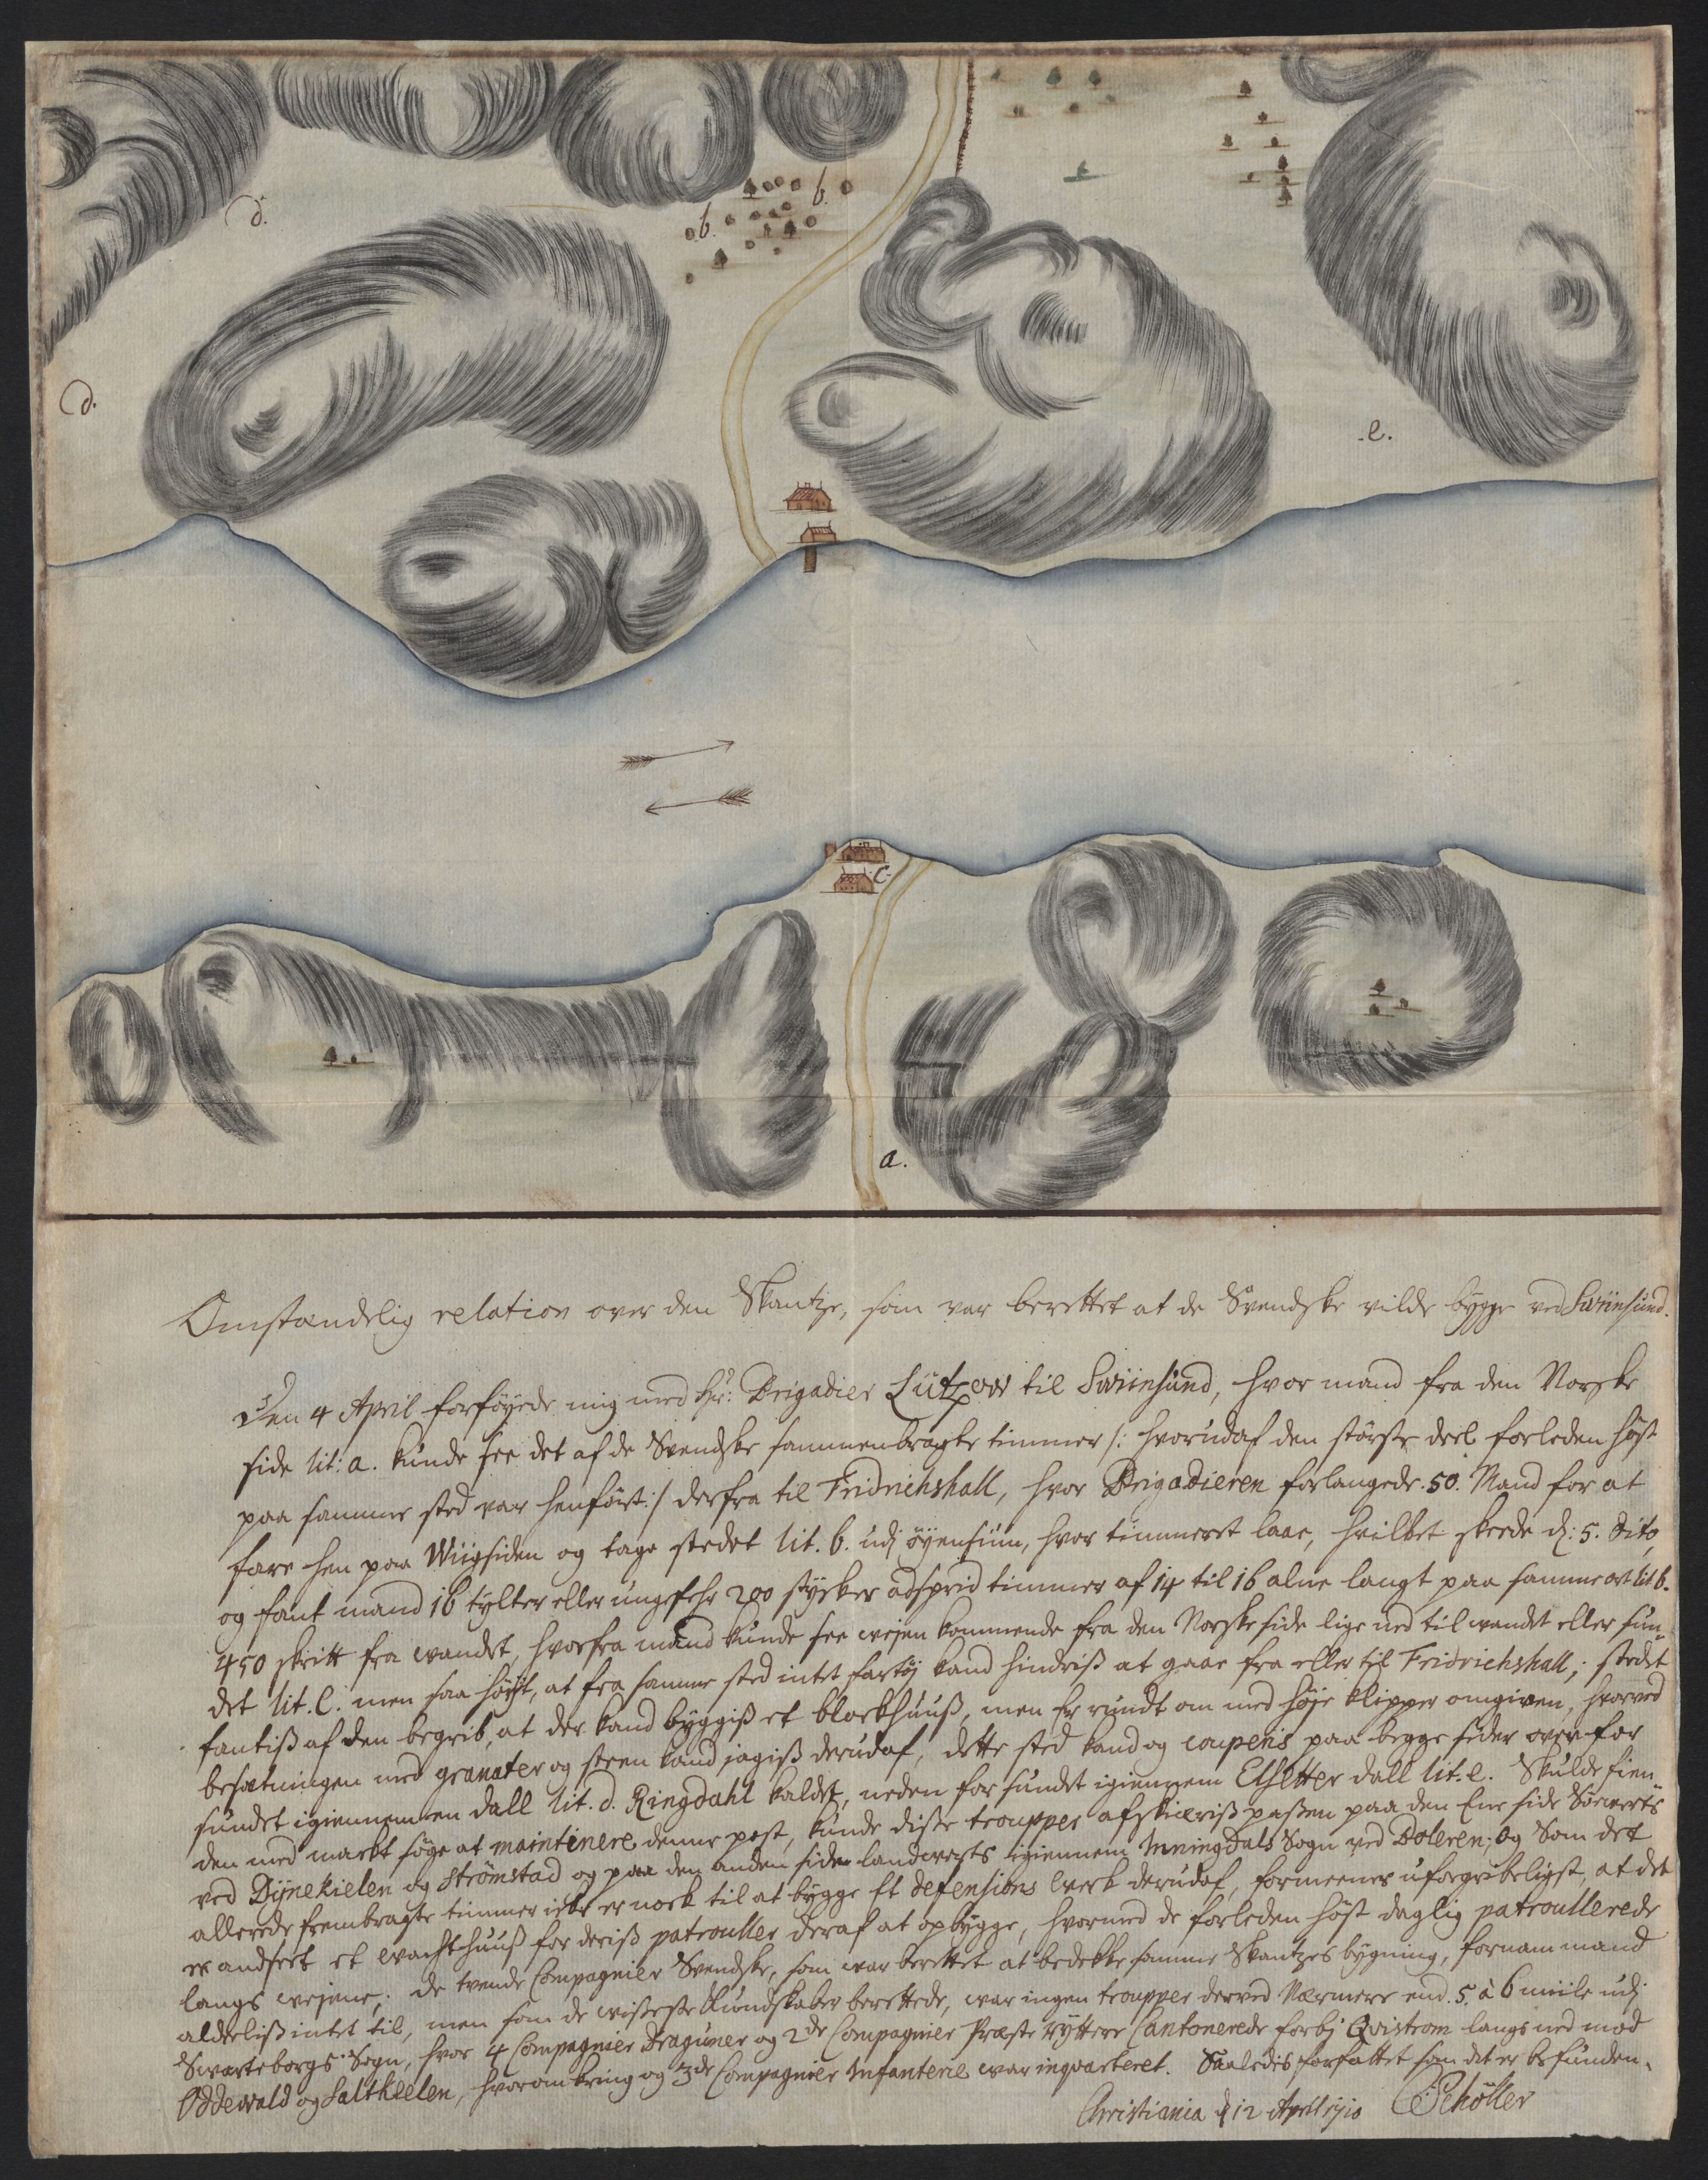 d.
b.
b.
d.
e.
c.
a.
Omstændelig relation over den Skantze, som var berettet at de Svendske vilde bygge ved Swiinsund.
Den 4 April forføyede mig med Hr: Brigadier Lützow til Swiinsund, hvor mand fra den Norske
side lit: a. kunde see det af de Svendske sammenbragte timmer /: hvorudaf den störste deel forleden höst
paa samme sted var henfört :/ derfra til Fridrichshall, hvor Brigadieren forlangede 50. Mand for at
fare hen paa Wiigsiden og tage stedet lit. b. udj øyensiun, hvor timmeret laae, hvilket skeede d: 5. dito,
og fant mand 16 tylter eller ungefehr 200 stycker adsprid timmer af 14 til 16 alne langt paa samme ort lit b.
450 skritt fra wandet, hvorfra mand kunde see wejen kommende fra den Norske side lige ned til wandet eller sun-
det lit. C: men saa höyt, at fra samme sted intet fartöj kand hindriss at gaae fra eller til Fridrichshall; stedet
fantiss af den begrib, at der kand byggiss et blockhuuss, men er rundt om med höje klipper omgiven, hvorved
besætningen med granater og steen kand jagiss derudaf, dette sted kand og couperis paa begge sider over for
sundet igiennem en dall lit. d. Ringdahl kaldet, neden for sundet igiennem Elsetter dall lit. e. Skulde fien-
den med magt söge at maintinere denne post, kunde disse troupper afskiæriss passen paa den Ene side Söewerts
ved Dynekielen og Strömstad og paa den anden side landwerts igiennem Inningdals Sogn ved Doleren; og Som det
allerede frembragte timmer icke er nock til at bygge Et defensions werk derudaf, formeener uforgribeligst, at det
er andseet et wachthuuss for deriss patrouller deraf at opbygge, hvormed de forleden höst daglig patroullerede
langs wejene; de tvende Compagnier Svendske, som war berettet at bedekke samme Skantzes bygning, fornam mand
alderliss intet til, men som de wisseste Kundskaber berettede, war ingen troupper derved Nærmere end. 5. à 6 miile udj
Swarteborgs Sogn, hvor 4 Compagnier Draguner og 2de Compagnier Præste Rÿttere Cantonerede forbj Qvistrom langs ned mod
Oddewald og Saltkeelen, hvoromkring og 3de Compagnier Infanterie war inqvarteret. Saaledis forfattet som det er befunden.
Christiania d 12 April 1710 CSchöller